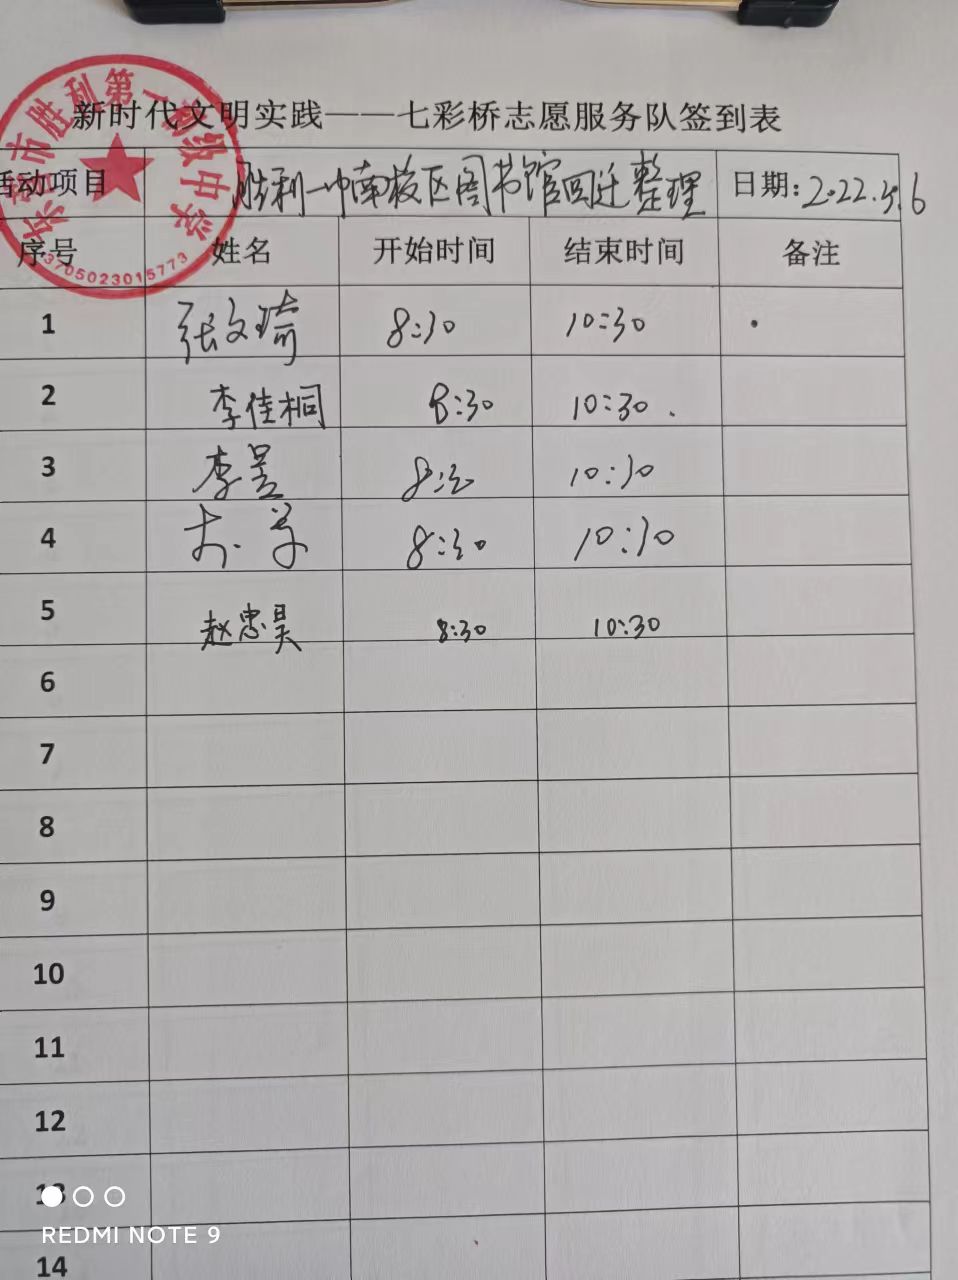 新时代文明实践——七彩桥志愿服务队签到表
活动项目 胜利一中南校区图书馆回迁整理 日期:2022.5.6
序号 姓名 开始时间 结束时间 备注
1 张文琦 8:30 10:30
2 李佳桐 8:30 10:30.
3 李昱 8:30 10:30
4 8:30 10:30
5 赵忠昊 8:30 10:30
6
7
8
9
10
11
12
13
14
东营市胜利第一高级中学
3705023015773
REDMI NOTE 9